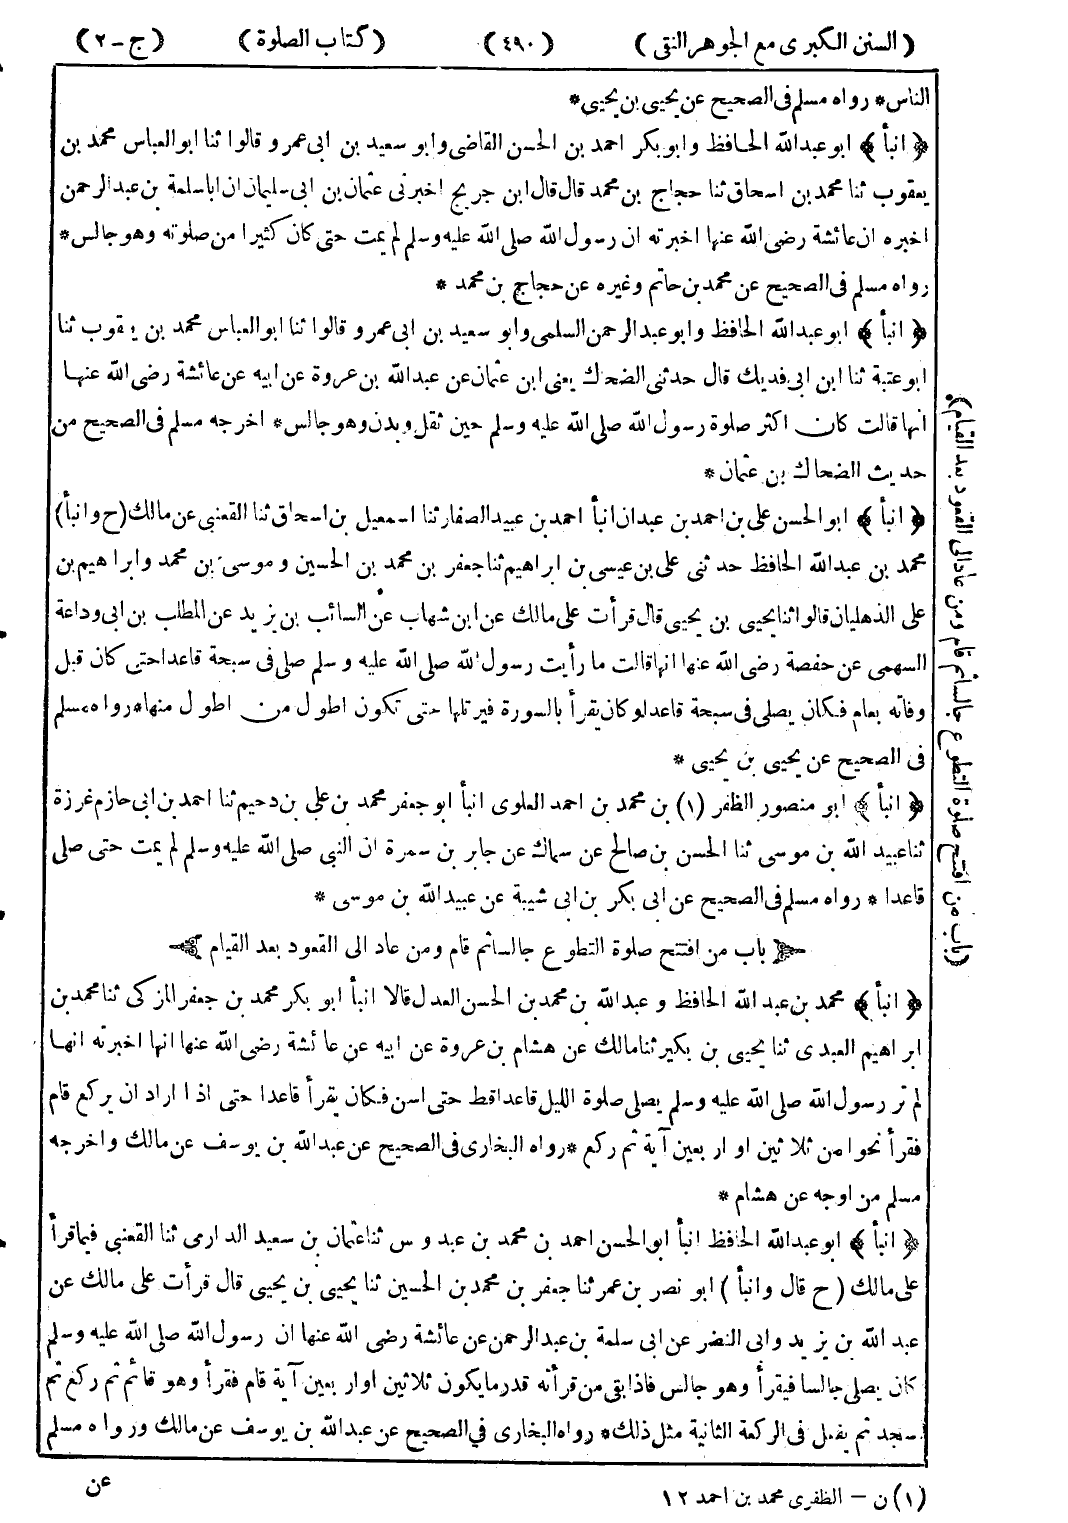 (السنن الكبرى مع الجوهر النقى) (٤٩٠) (كتاب الصلوة) (ج-٢)
الناس * رواه مسلم فى الصحيح عن يحيى بن يحيى *
﴿ انبأ ﴾ ابو عبد الله الحافظ وابو بكر احمد بن الحسن القاضى وابو سعيد بن ابى عمرو قالوا ثنا ابو العباس محمد بن
يعقوب ثنا محمد بن اسحاق ثنا حجاج بن محمد قال قال ابن جريج اخبرنى عثمان بن ابى سليمان ان اباسلمة بن عبد الرحمن
اخبره ان عائشة رضى الله عنها اخبرته ان رسول الله صلى الله عليه وسلم لم يمت حتى كان كثيرا من صلوته وهو جالس *
رواه مسلم فى الصحيح عن محمد بن حاتم وغيره عن حجاج بن محمد *
﴿ انبأ ﴾ ابو عبد الله الحافظ وابو عبد الرحمن السلمى وابو سعيد بن ابى عمرو قالوا ثنا ابو العباس محمد بن يعقوب ثنا
ابو عتبة ثنا ابن ابى فديك قال حدثنى الضحاك يعنى ابن عثمان عن عبد الله بن عروة عن ابيه عن عائشة رضى الله عنها
انها قالت كان اكثر صلوة رسول الله صلى الله عليه وسلم حين ثقل وبدن وهو جالس * اخرجه مسلم فى الصحيح من
حديث الضحاك بن عثمان *
﴿ انبأ ﴾ ابو الحسن على بن احمد بن عبدان انبأ احمد بن عبيد الصفار ثنا اسمعيل بن اسحاق ثنا القعنبى عن مالك (ح وانبأ)
محمد بن عبد الله الحافظ حدثنى على بن عيسى بن ابراهيم ثنا جعفر بن محمد بن الحسين وموسى بن محمد وابراهيم بن
على الذهليان قالوا ثنا يحيى بن يحيى قال قرأت على مالك عن ابن شهاب عن السائب بن يزيد عن المطلب بن ابى وداعة
السهمى عن حفصة رضى الله عنها انها قالت ما رأيت رسول الله صلى الله عليه وسلم صلى فى سبحة قاعدا حتى كان قبل
وفاته بعام فكان يصلى فى سبحة قاعدا وكان يقرأ بالسورة فيرتلها حتى تكون اطول من اطول منها * رواه مسلم
فى الصحيح عن يحيى بن يحيى *
﴿ انبأ ﴾ ابو منصور الظفر (١) بن محمد بن احمد العلوى انبأ ابو جعفر محمد بن على بن دحيم ثنا احمد بن ابى حازم غرزة
ثنا عبيد الله بن موسى ثنا الحسن بن صالح عن سماك عن جابر بن سمرة ان النبى صلى الله عليه وسلم لم يمت حتى صلى
قاعدا * رواه مسلم فى الصحيح عن ابى بكر بن ابى شيبة عن عبيد الله بن موسى *
باب من افتتح صلوة التطوع جالسا ثم قام ومن عاد الى القعود بعد القيام
﴿ انبأ ﴾ محمد بن عبد الله الحافظ وعبد الله بن محمد بن الحسن العدل قالا انبأ ابو بكر محمد بن جعفر المزكى ثنا محمد بن
ابراهيم العبدى ثنا يحيى بن بكير ثنا مالك عن هشام بن عروة عن ابيه عن عائشة رضى الله عنها انها اخبرته انها
لم تر رسول الله صلى الله عليه وسلم يصلى صلوة الليل قاعدا قط حتى اسن فكان يقرأ قاعدا حتى اذا اراد ان يركع قام
فقرأ نحوا من ثلاثين او اربعين آية ثم ركع * رواه البخارى فى الصحيح عن عبد الله بن يوسف عن مالك واخرجه
مسلم من اوجه عن هشام *
﴿ انبأ ﴾ ابو عبد الله الحافظ انبأ ابو الحسن احمد بن محمد بن عبدوس ثنا عثمان بن سعيد الدارمى ثنا القعنبى فيما قرأ
على مالك (ح قال وانبأ) ابو نصر بن عمر ثنا جعفر بن محمد بن الحسين ثنا يحيى بن يحيى قال قرأت على مالك عن
عبد الله بن يزيد وابى النضر عن ابى سلمة بن عبد الرحمن عن عائشة رضى الله عنها ان رسول الله صلى الله عليه وسلم
كان يصلى جالسا فيقرأ وهو جالس فاذا بقى من قرأته قدر ما يكون ثلاثين او اربعين آية قام فقرأ وهو قائم ثم ركع ثم
سجد ثم يفعل فى الركعة الثانية مثل ذلك * رواه البخارى في الصحيح عن عبد الله بن يوسف عن مالك ورواه مسلم
عن
(١) ن - الظفرى محمد بن احمد ١٢
(باب من افتتح صلوة التطوع جالسا ثم قام ومن عاد الى القعود بعد القيام)